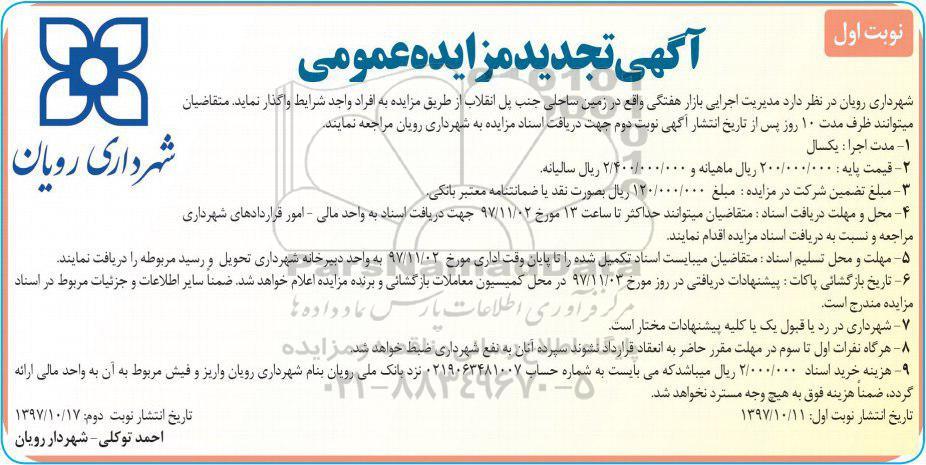 نوبت اول
آگهی تجدید مزایده عمومی
شهرداری رویان
شهرداری رویان در نظر دارد مدیریت اجرایی بازار هفتگی واقع در زمین ساحلی جنب پل انقلاب از طریق مزایده به افراد واجد شرایط واگذار نماید. متقاضیان
میتوانند ظرف مدت ۱۰ روز پس از تاریخ انتشار آگهی نوبت دوم جهت دریافت اسناد مزایده به شهرداری رویان مراجعه نمایند.
۱- مدت اجرا : یکسال
۲- قیمت پایه : ۲۰۰/۰۰۰/۰۰۰ ریال ماهیانه و ۲/۴۰۰/۰۰۰/۰۰۰ ریال سالیانه.
۳- مبلغ تضمین شرکت در مزایده : مبلغ ۱۲۰/۰۰۰/۰۰۰ ریال بصورت نقد یا ضمانتنامه معتبر بانکی.
۴- محل و مهلت دریافت اسناد : متقاضیان میتوانند حداکثر تا ساعت ۱۳ مورخ ۹۷/۱۱/۰۲ جهت دریافت اسناد به واحد مالی - امور قراردادهای شهرداری
مراجعه و نسبت به دریافت اسناد مزایده اقدام نمایند.
۵- مهلت و محل تسلیم اسناد : متقاضیان میبایست اسناد تکمیل شده را تا پایان وقت اداری مورخ ۹۷/۱۱/۰۲ به واحد دبیرخانه شهرداری تحویل و رسید مربوطه را دریافت نمایند.
۶- تاریخ بازگشائی پاکات : پیشنهادات دریافتی در روز مورخ ۹۷/۱۱/۰۳ در محل کمیسیون معاملات بازگشائی و برنده مزایده اعلام خواهد شد. ضمناً سایر اطلاعات و جزئیات مربوط در اسناد
مزایده مندرج است.
۷- شهرداری در رد یا قبول یک یا کلیه پیشنهادات مختار است.
۸- هرگاه نفرات اول تا سوم در مهلت مقرر حاضر به انعقاد قرارداد نشوند سپرده آنان به نفع شهرداری ضبط خواهد شد.
۹- هزینه خرید اسناد ۲/۰۰۰/۰۰۰ ریال میباشدکه می بایست به شماره حساب ۰۲۱۹۰۶۳۴۸۱۰۰۷ نزد بانک ملی رویان بنام شهرداری رویان واریز و فیش مربوط به آن به واحد مالی ارائه
گردد، ضمناً هزینه فوق به هیچ وجه مسترد نخواهد شد.
تاریخ انتشار نوبت اول: ۱۳۹۷/۱۰/۱۱
تاریخ انتشار نوبت دوم: ۱۳۹۷/۱۰/۱۷
احمد توکلی- شهردار رویان
ParsNamadData
مرکز فرآوری اطلاعات پارس نماد داده ها
۰۲۱-۸۸۳۴۹۶۷۰-۵